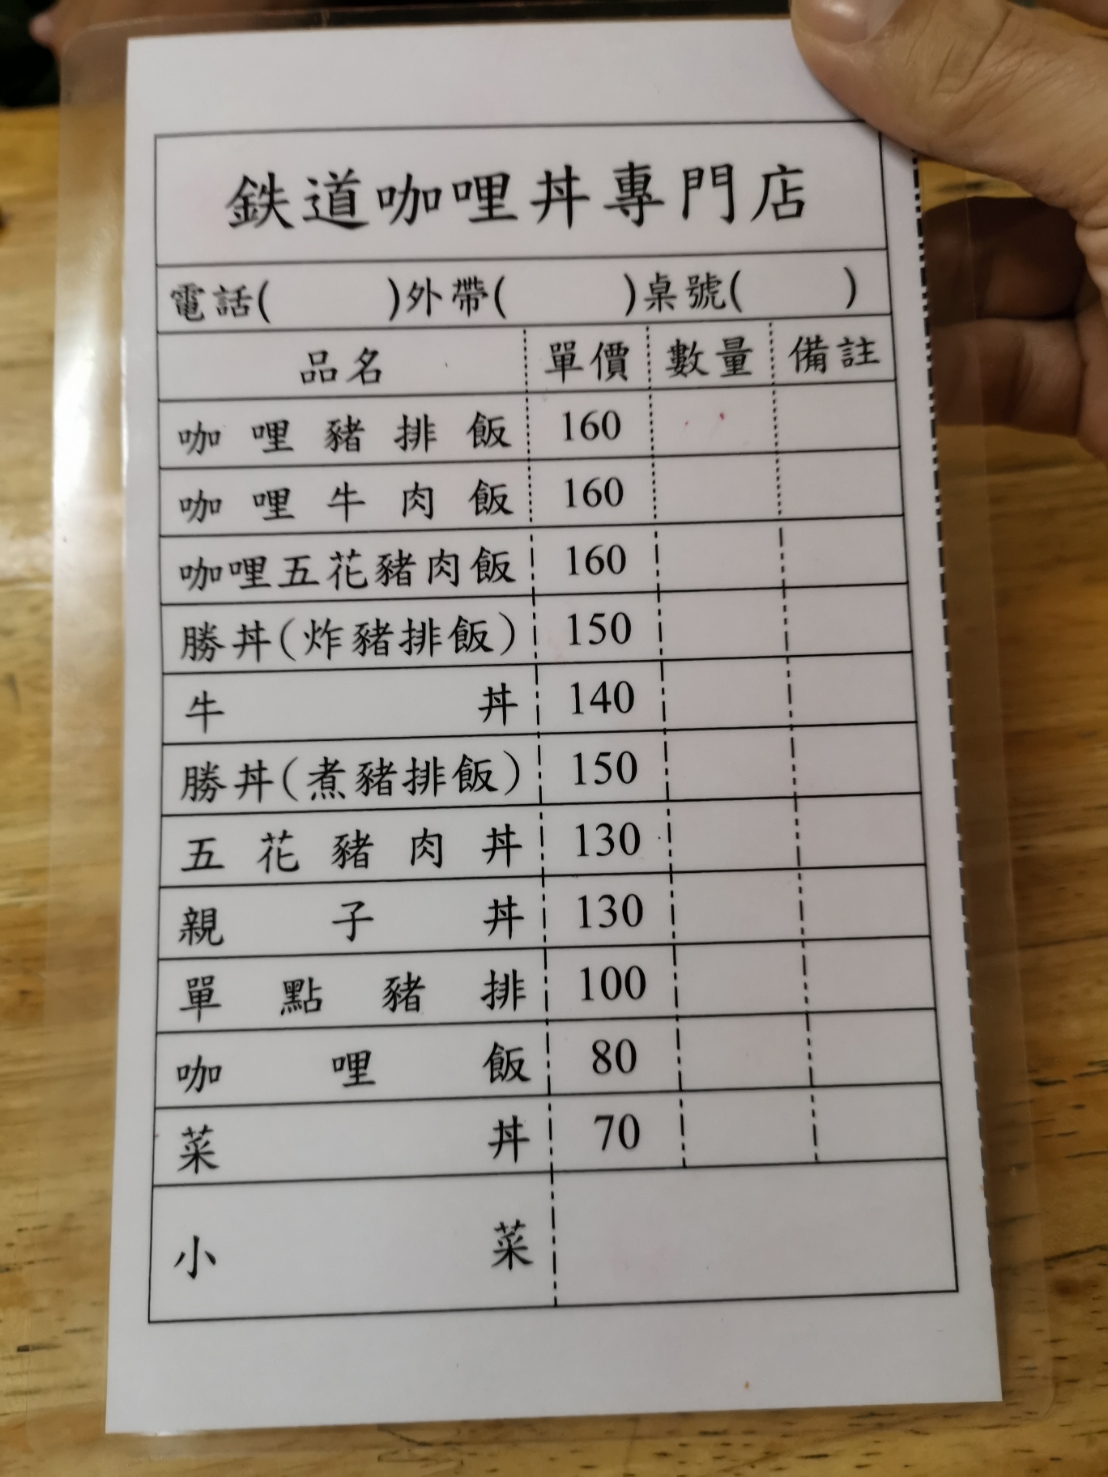 鉄道咖哩丼專門店
電話( )外帶( )桌號( )
品名 單價 數量 備註
咖哩豬排飯 160
咖哩牛肉飯 160
咖哩五花豬肉飯 160
勝丼(炸豬排飯) 150
牛丼 140
勝丼(煮豬排飯) 150
五花豬肉丼 130
親子丼 130
單點豬排 100
咖哩飯 80
菜丼 70
小菜